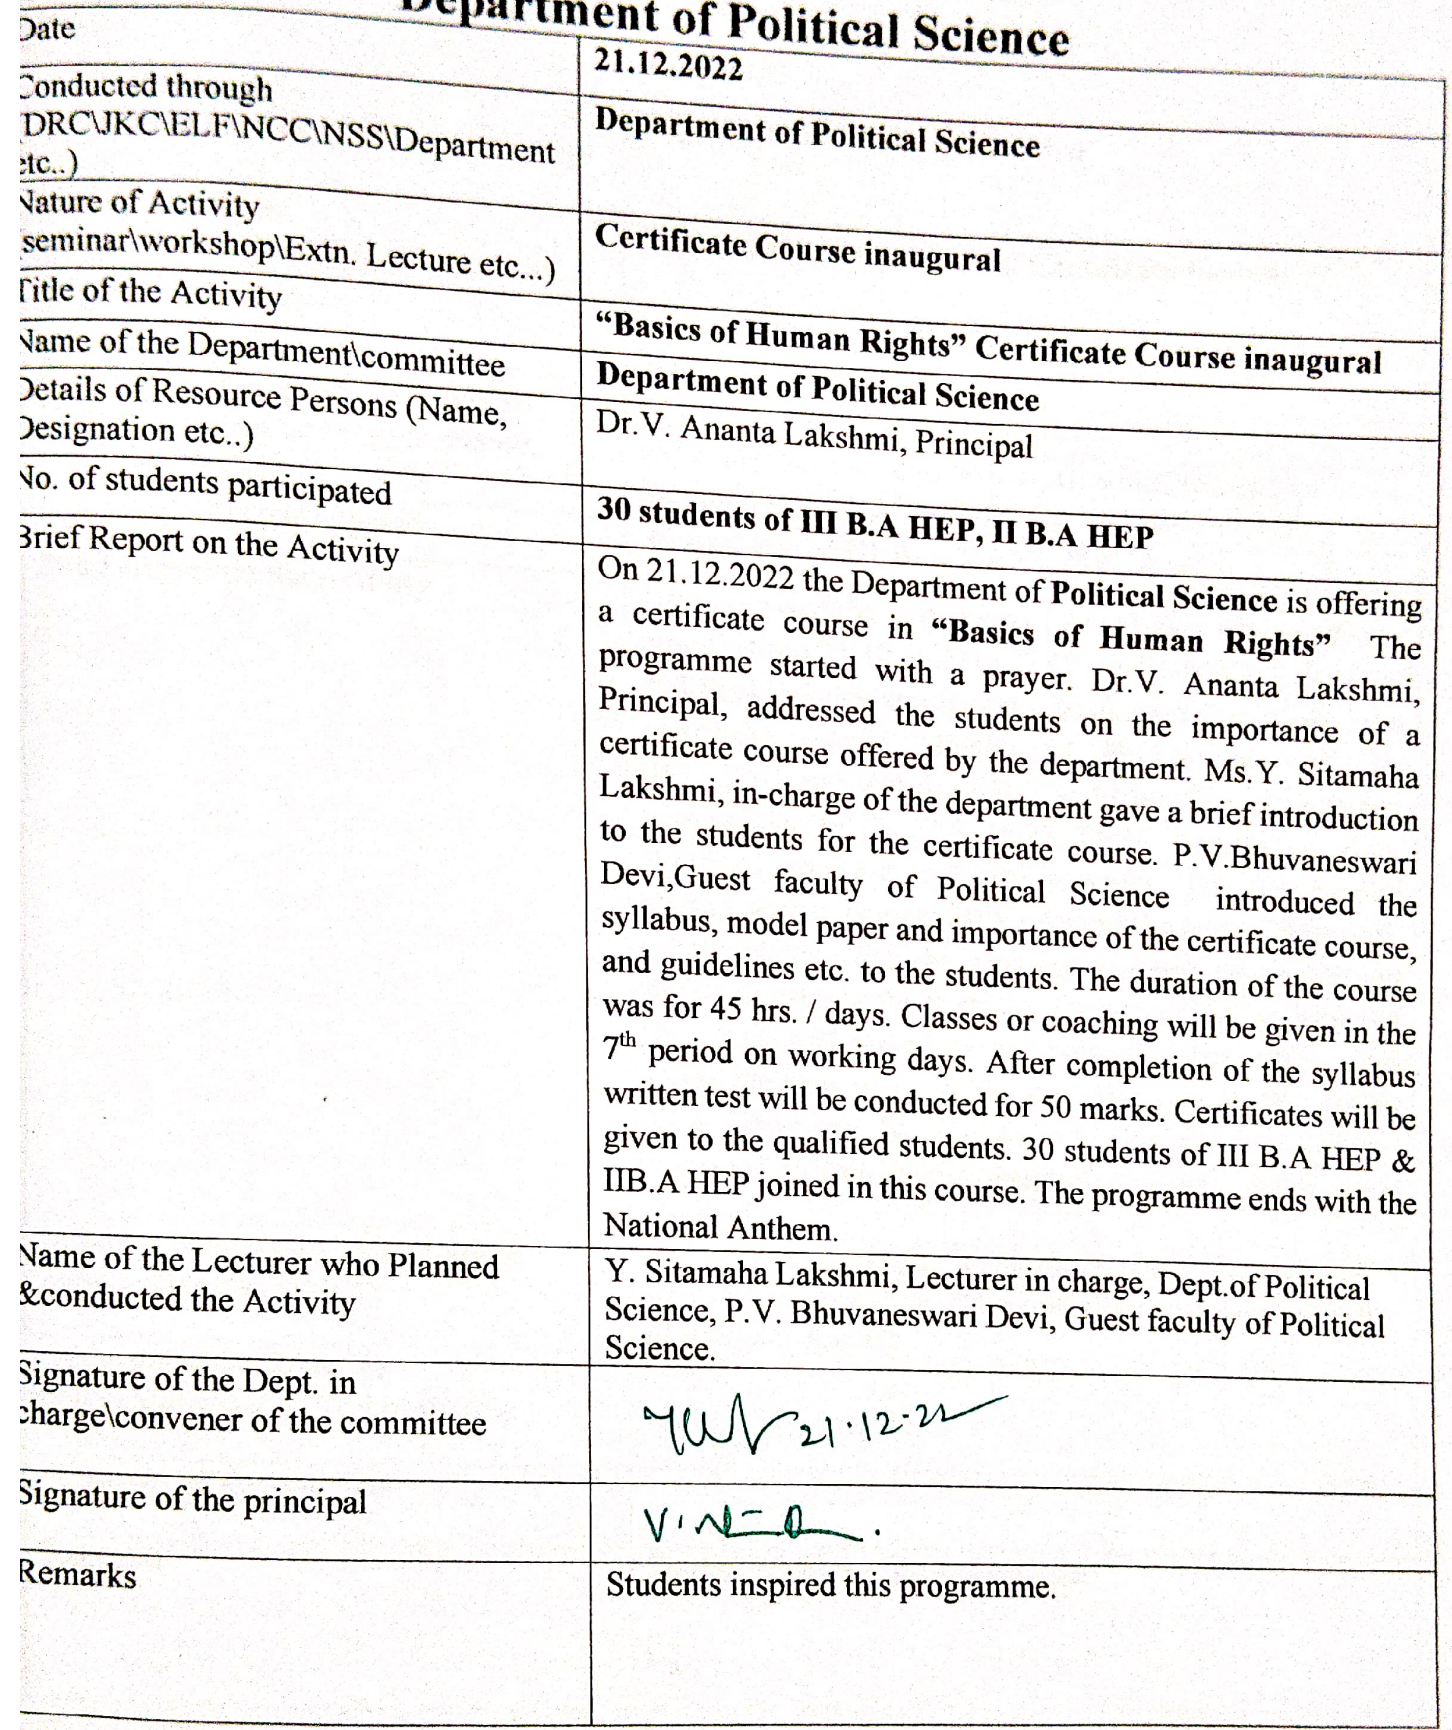 Department of Political Science
Date
21.12.2022
Conducted through
DRC\JKC\ELF\NCC\NSS\Department
etc..)
Department of Political Science
Nature of Activity
seminar\workshop\Extn. Lecture etc...)
Certificate Course inaugural
Title of the Activity
“Basics of Human Rights” Certificate Course inaugural
Name of the Department\committee
Department of Political Science
Details of Resource Persons (Name,
Designation etc..)
Dr.V. Ananta Lakshmi, Principal
No. of students participated
30 students of III B.A HEP, II B.A HEP
Brief Report on the Activity
On 21.12.2022 the Department of Political Science is offering
a certificate course in “Basics of Human Rights” The
programme started with a prayer. Dr.V. Ananta Lakshmi,
Principal, addressed the students on the importance of a
certificate course offered by the department. Ms.Y. Sitamaha
Lakshmi, in-charge of the department gave a brief introduction
to the students for the certificate course. P.V.Bhuvaneswari
Devi,Guest faculty of Political Science introduced the
syllabus, model paper and importance of the certificate course,
and guidelines etc. to the students. The duration of the course
was for 45 hrs. / days. Classes or coaching will be given in the
7th period on working days. After completion of the syllabus
written test will be conducted for 50 marks. Certificates will be
given to the qualified students. 30 students of III B.A HEP &
IIB.A HEP joined in this course. The programme ends with the
National Anthem.
Name of the Lecturer who Planned
&conducted the Activity
Y. Sitamaha Lakshmi, Lecturer in charge, Dept.of Political
Science, P.V. Bhuvaneswari Devi, Guest faculty of Political
Science.
Signature of the Dept. in
charge\convener of the committee
21.12.22
Signature of the principal
Remarks
Students inspired this programme.